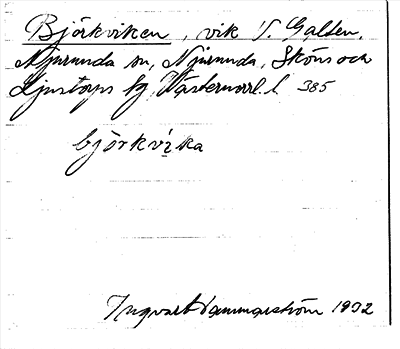 Björkviken, vik V. Galten,
Njurunda sn, Njurunda, Sköns och
Ljustorps tg, Västernorrl. l. 385
björkvika
Ingvar Hammarström 1932